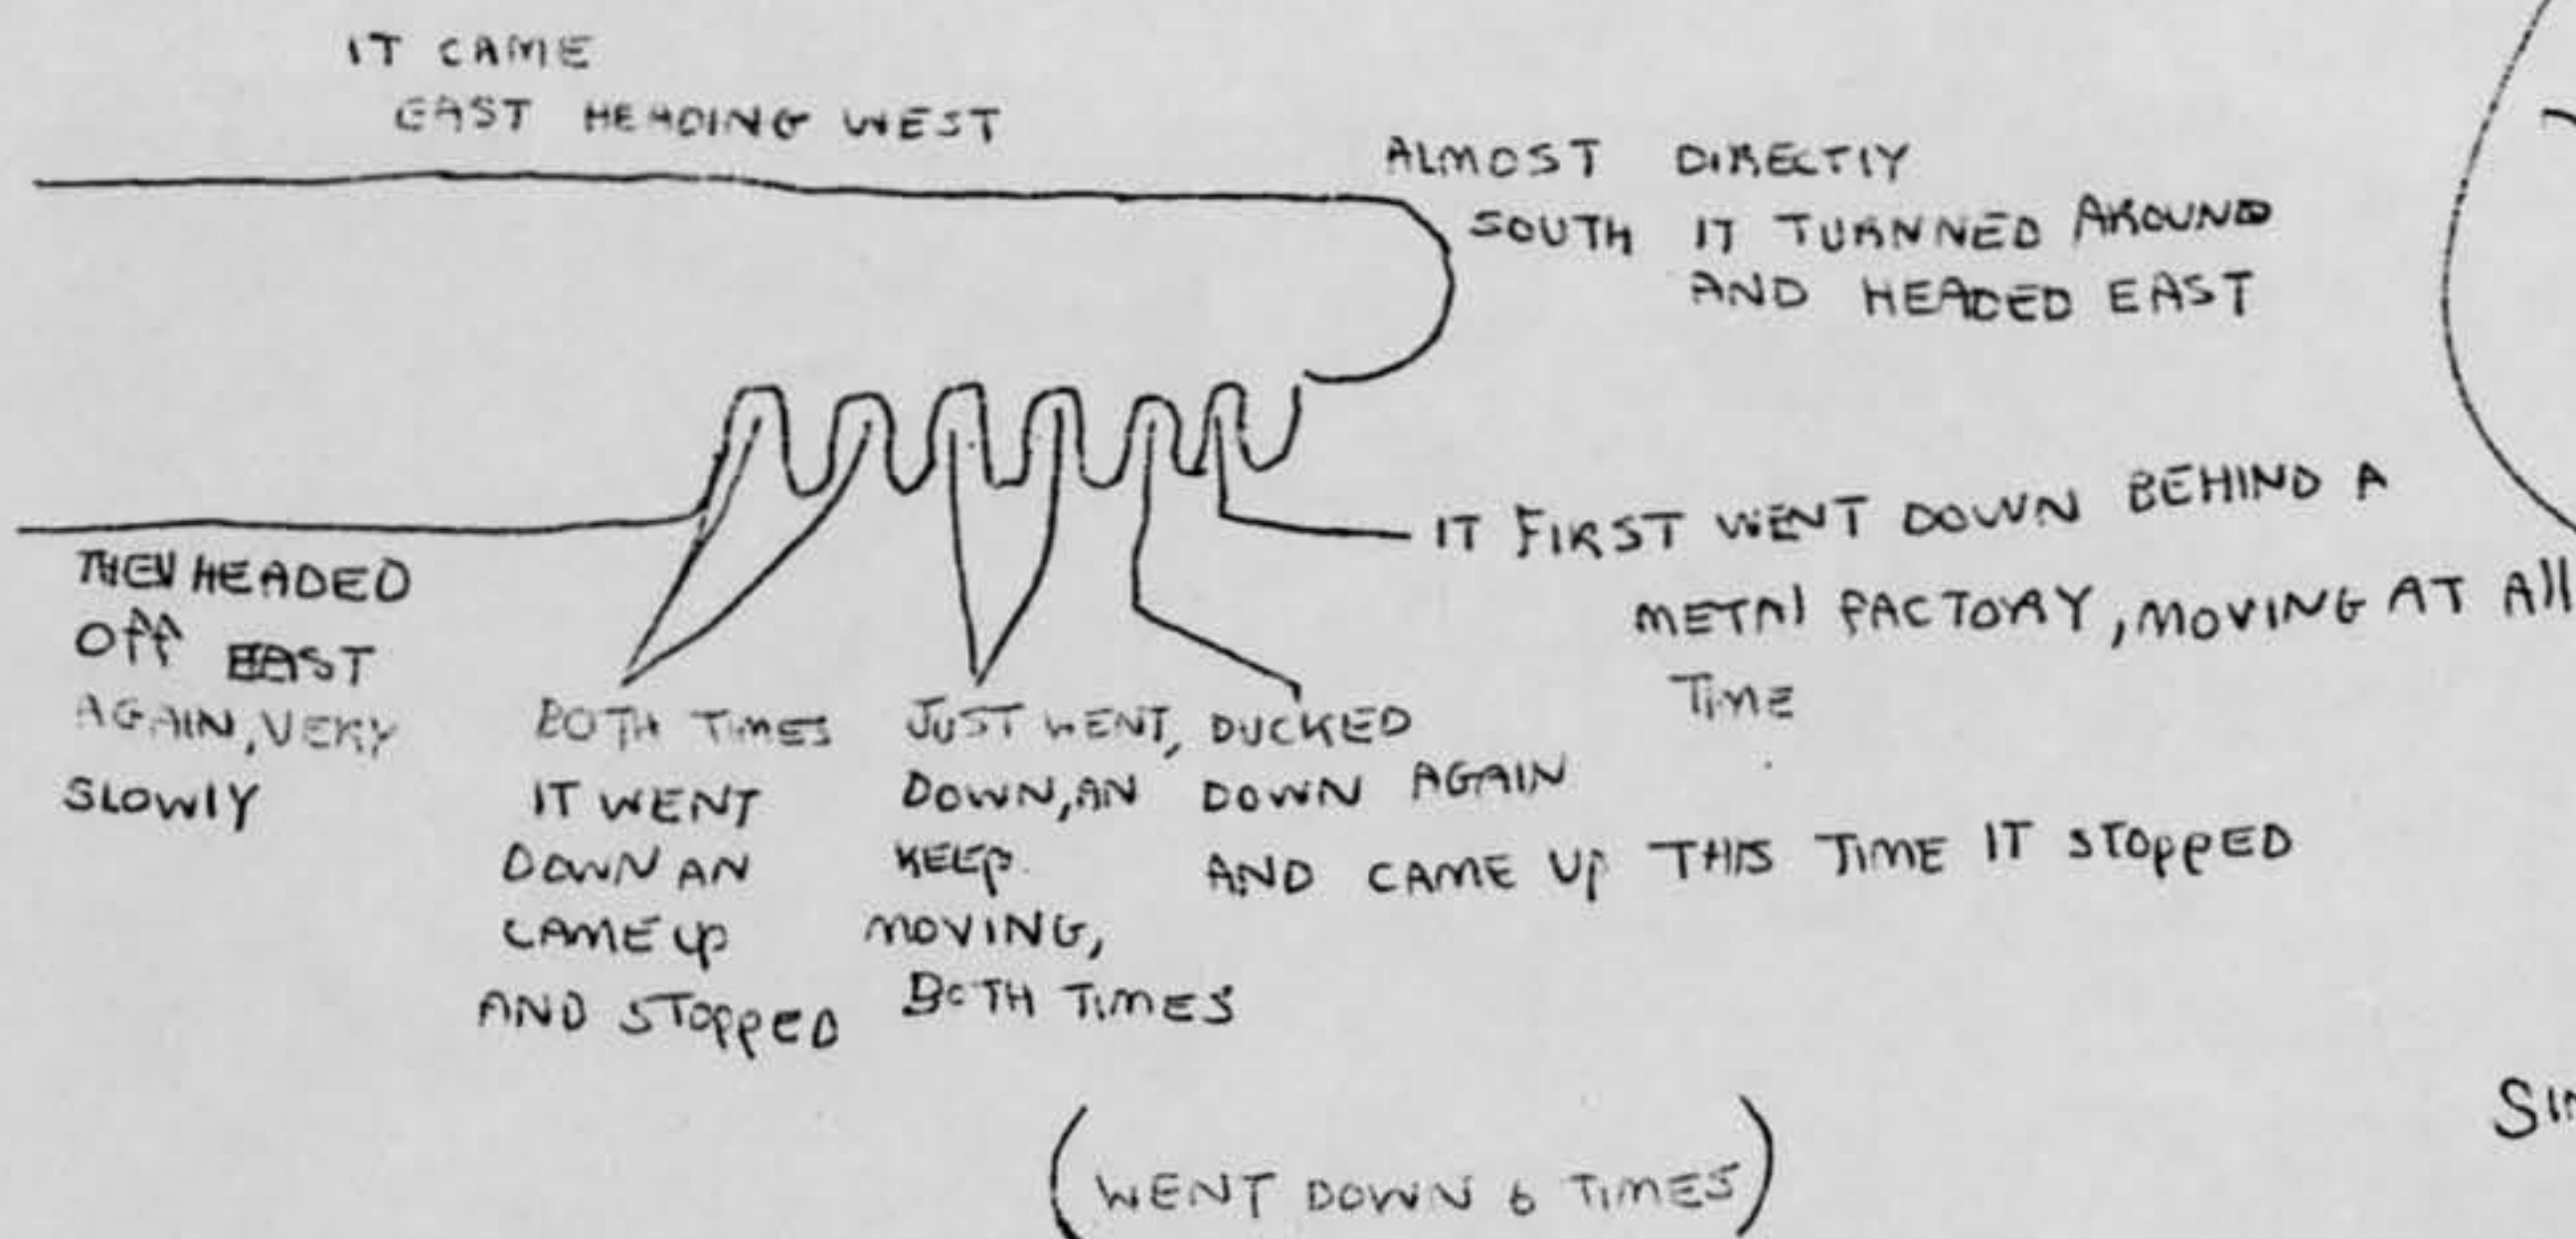 IT CAME
EAST HEADING WEST
ALMOST DIRECTLY
SOUTH IT TURNNED AROUND
AND HEADED EAST
IT FIRST WENT DOWN BEHIND A
METAl FACTORY, MOVING AT All
TimE
THEN HEADED
Off EAST
AGAIN, VERY
SLOWLY
BOTH TimES
IT WENT
DOWN AN
CAME up
AND STOppED
JUST WENT,
DOWN, AN
KEEp
MOVING,
BOTH TimES
DUCKED
DOWN AGAIN
AND CAME Up THIS TIME IT STOppED
(WENT DOWN 6 TIMES)